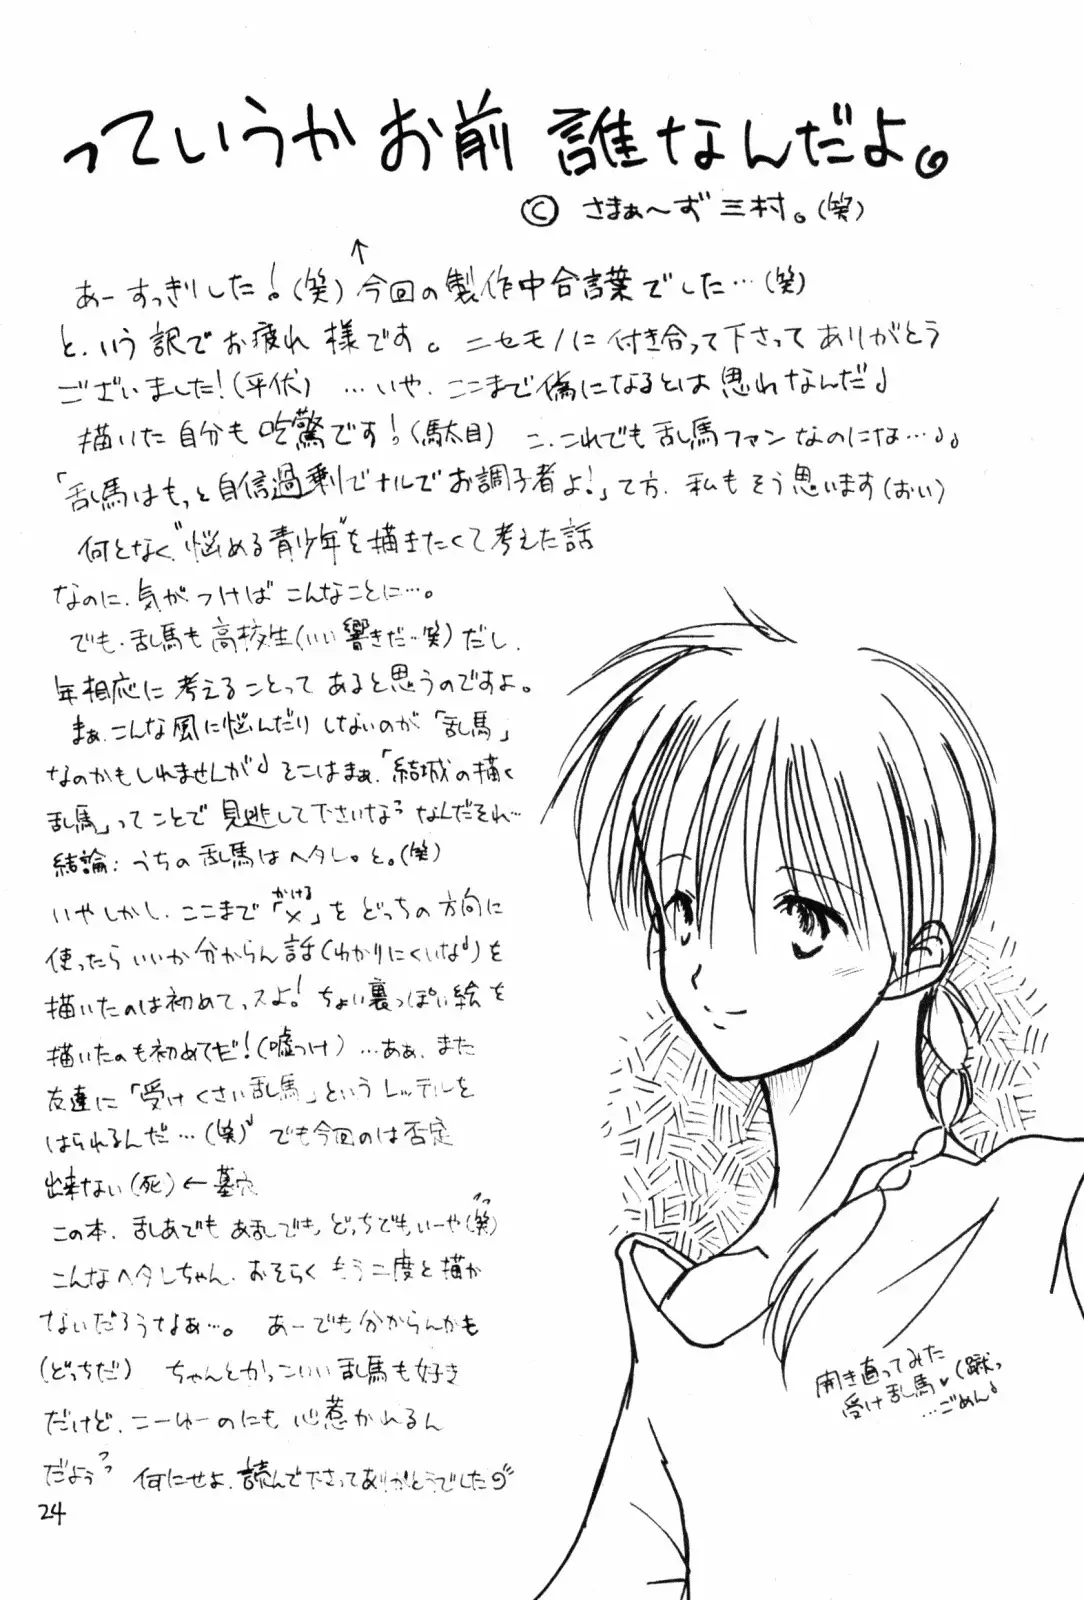 っていうかお前 誰なんだよ。
© さまぁ〜ず三村。(笑)
↑
あーすっきりした!(笑) 今回の製作中合言葉でした…(笑)
と、いう訳でお疲れ様です。ニセモノに付き合って下さってありがとう
ございました!(平伏) …いや、ここまで偽になるとは思わなんだ♪
描いた自分も吃驚です!(駄目) こ、これでも乱馬ファンなのにな…♪。
「乱馬はもっと自信過剰でナルでお調子者よ!」て方、私もそう思います(おい)
何となく"悩める青少年"を描きたくて考えた話
なのに、気がつけばこんなことに…。
でも、乱馬も高校生(いい響きだ…笑)だし、
年相応に考えることってあると思うのですよ。
まぁ、こんな風に悩んだりしないのが「乱馬」
なのかもしれませんが♪そこはまぁ、「結城の描く
乱馬」ってことで見逃して下さいなっ なんだそれ…
結論:うちの乱馬はヘタレ。と。(笑)
いやしかし、ここまで「×」をどっちの方向に
かける
使ったらいいか分からん話(わかりにくいな♪)を
描いたのは初めてっスよ!ちょい裏っぽい絵を
描いたのも初めてだ!(嘘つけ) …あぁ、また
友達に「受けくさい乱馬」というレッテルを
はられるんだ…(笑) でも今回のは否定
出来ない(死)←墓穴
この本、乱あでもあ乱でも、どっちでもいーや(笑)
こんなヘタレちゃん、おそらくもう二度と描か
ないだろうなぁ…。 あーでも分からんかも
(どっちだ) ちゃんとかっこいい乱馬も好き
だけど、こーゆーのにも心惹かれるん
だよぅっ 何にせよ、読んで下さってありがとうでした
開き直ってみた
受け乱馬♥(蹴っ
…ごめん♪
24